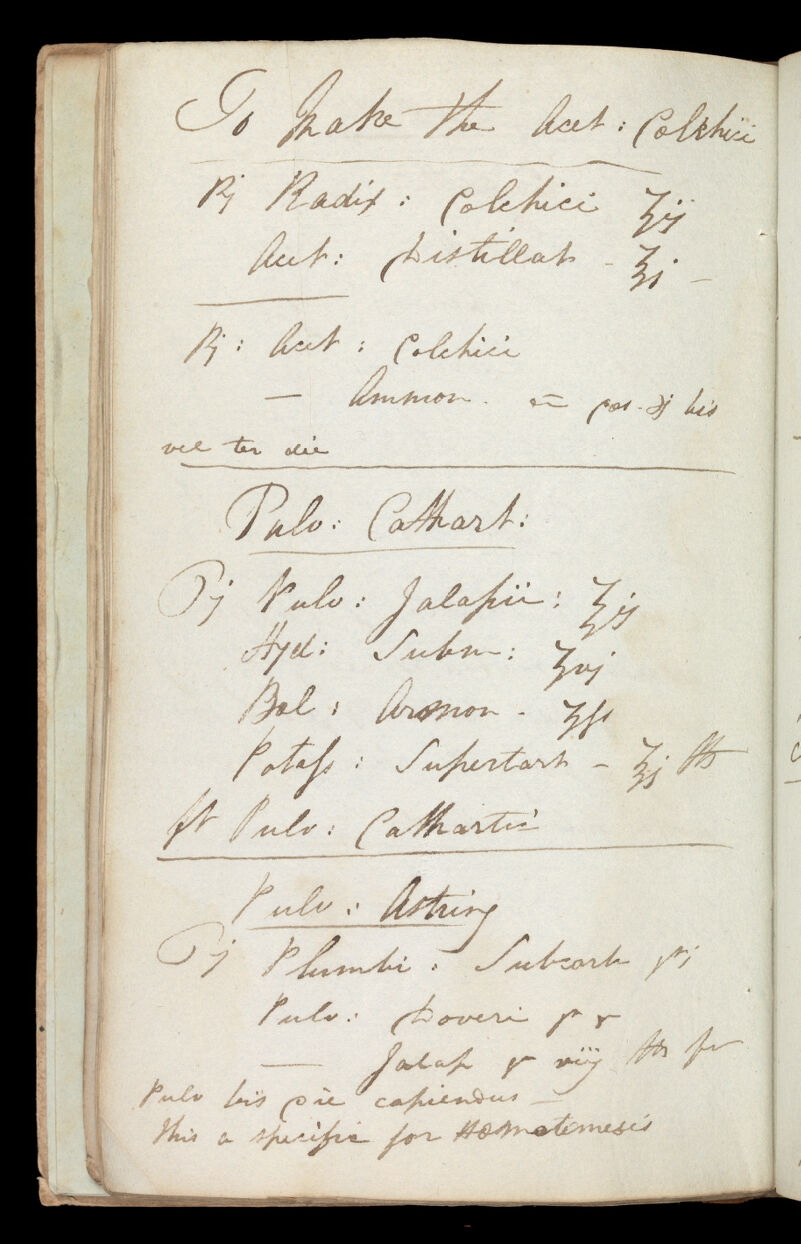 To Make the Acet: Colchici
℞ Radix: Colchici ʒij
Acet: Distillat - ℥j -
℞: Acet: Colchici
— Ammon. aa bis
vel ter die
Pulv: Cathart:
℞ Pulv: Jalapii: ʒij
Hyd: Subm: ʒvj
Bol: Armon - ʒſs
Potaſs: Supertart - ℥j M
ft Pulv: Cathartic
Pulv: Astring
℞ Plumbi: Subcarb gr j
Pulv: Doveri gr v
— Jalap gr viij M ft
Pulv bis die capiendus —
this a specific for Hæmatemesis